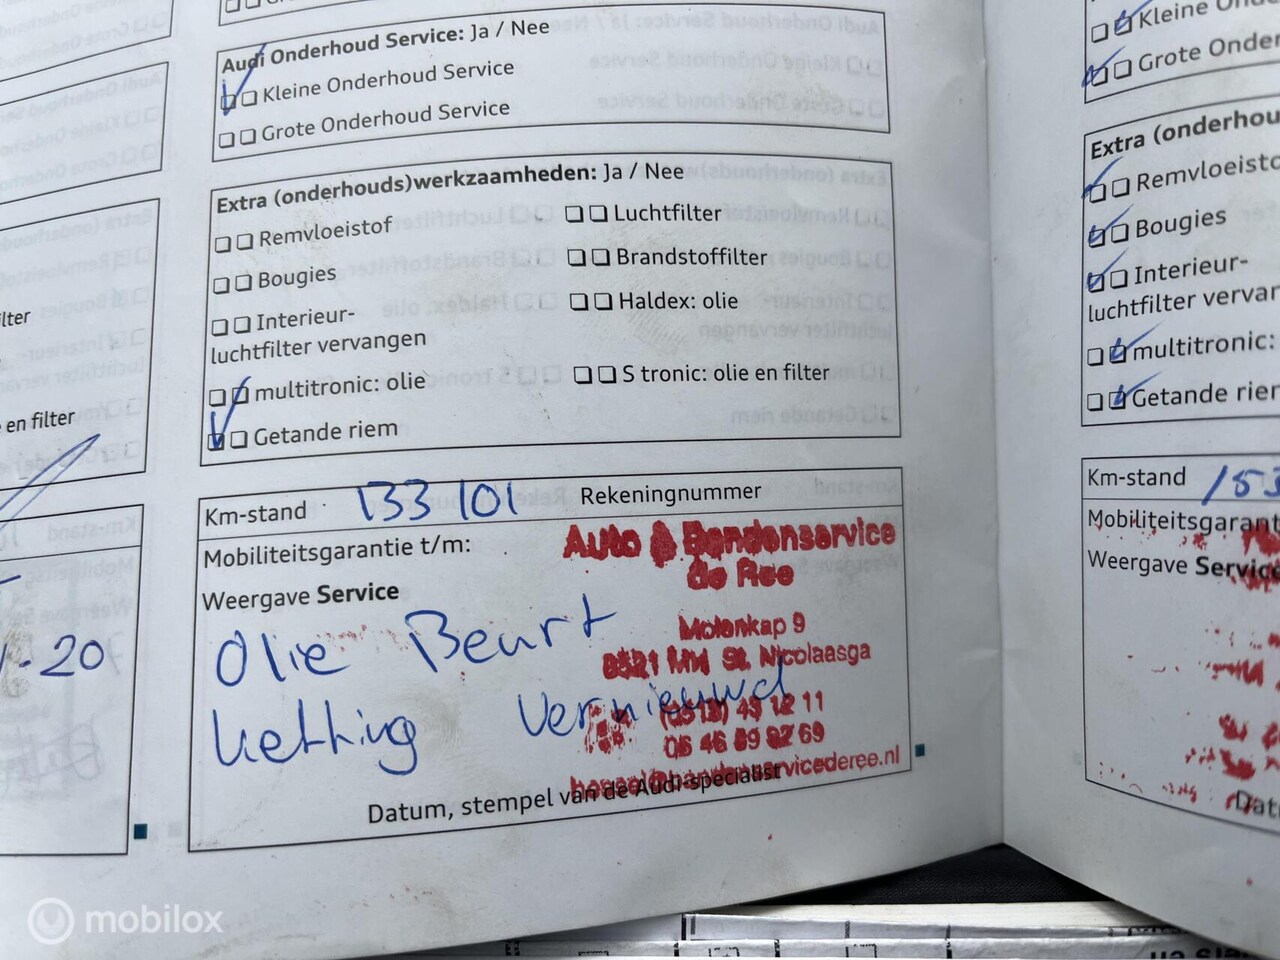 Audi Onderhoud Service: Ja / Nee
Kleine Onderhoud Service
Grote Onderhoud Service
Extra (onderhouds)werkzaamheden: Ja / Nee
Remvloeistof
Luchtfilter
Bougies
Brandstoffilter
Interieur-
luchtfilter vervangen
Haldex: olie
multitronic: olie
S tronic: olie en filter
Getande riem
Km-stand 133 101 Rekeningnummer
Mobiliteitsgarantie t/m:
Weergave Service
Auto & Bandenservice
de Ree
Molenkap 9
8521 MH St. Nicolaasga
Olie Beurt
ketting vernieuwd
(0513) 43 12 11
06 46 89 82 69
Datum, stempel van de Audi-specialist
en filter
-20
Kleine
Grote Onder
Extra (onderhou
Remvloeisto
Bougies
Interieur-
luchtfilter vervan
multitronic:
Getande rie
Km-stand 153
Mobiliteitsgarant
Weergave Service
Dat
mobilox